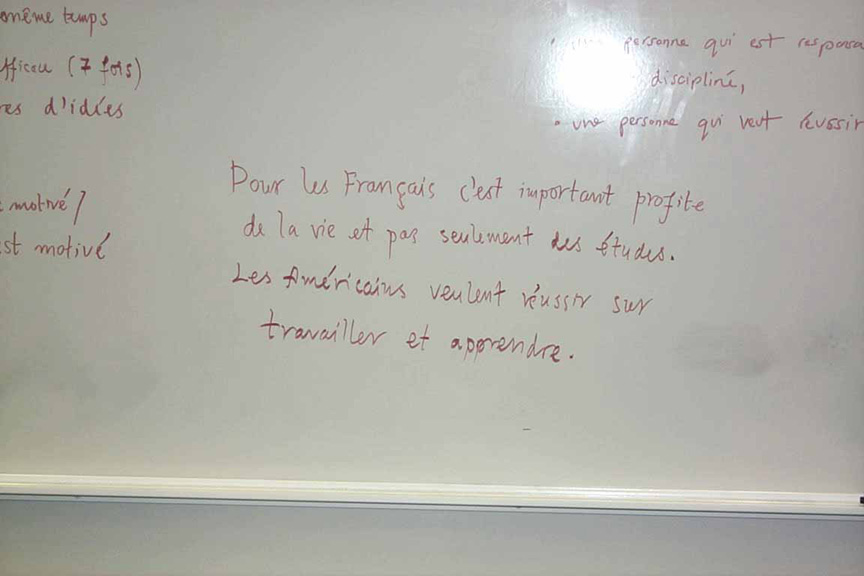 même temps
efficace (7 fois)
res d'idées
motivé /
est motivé
personne qui est responsa
discipliné,
• une personne qui veut réussir
Pour les Français c'est important profite
de la vie et pas seulement des études.
Les Américains veulent réussir sur
travailler et apprendre.